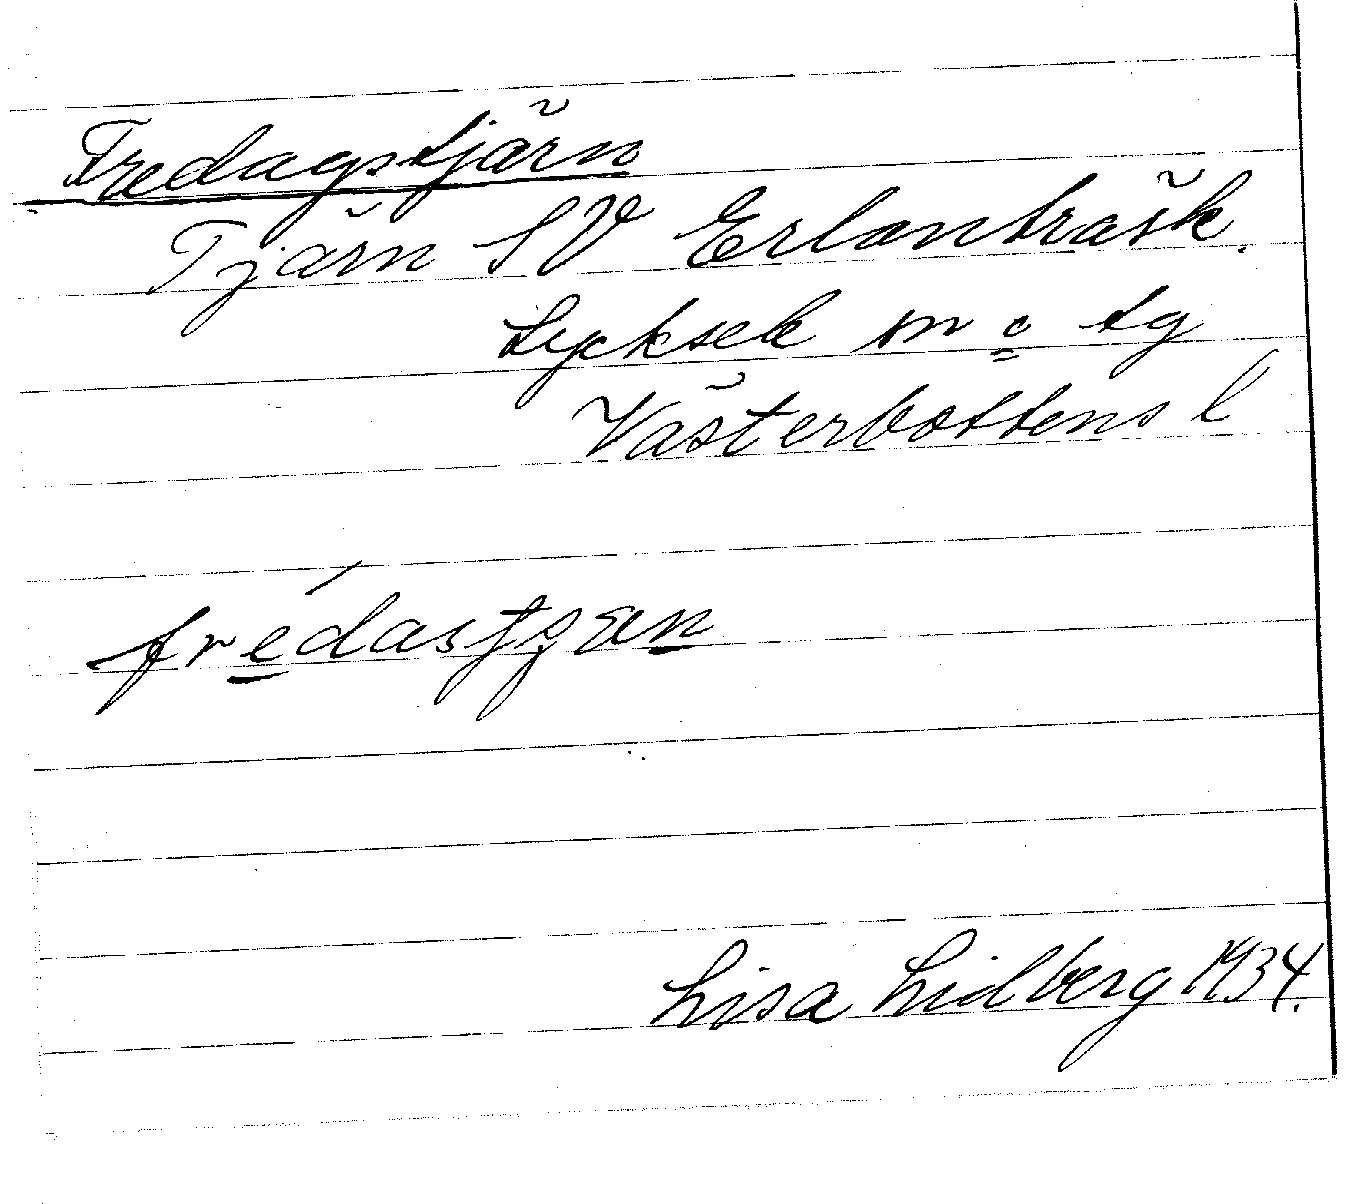 Fredagstjärn
Tjärn SV Erlanträsk.
Lycksele m o tg
Västerbottens l
frédastjæn
Lisa Lidberg 1934.